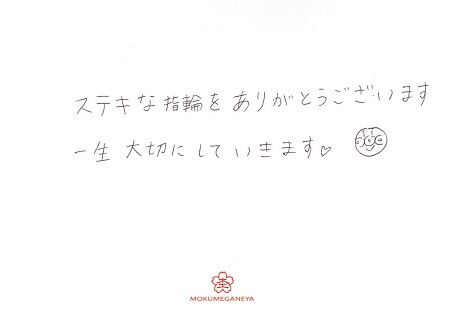 ステキな指輪をありがとうございます
一生 大切にしていきます♡
MOKUMEGANEYA